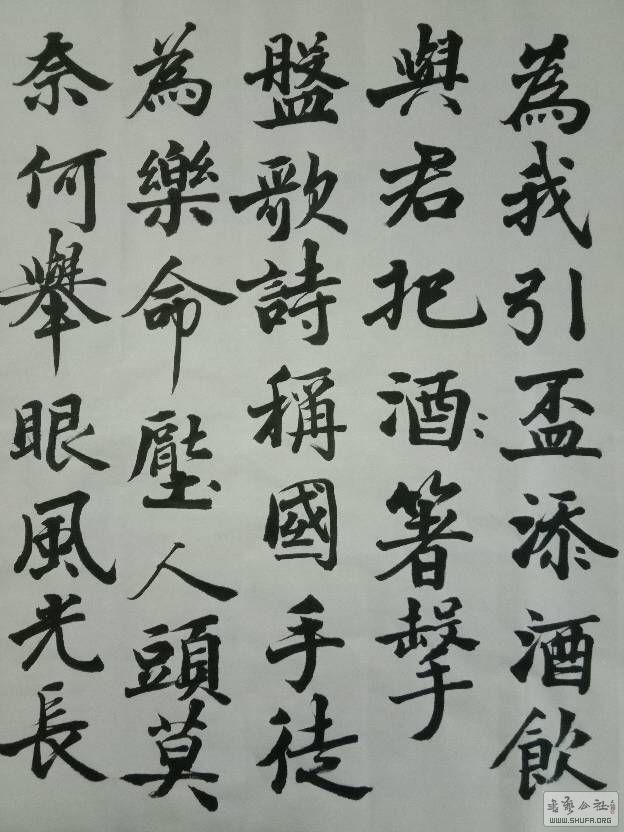 為我引盃添酒飲
與君把酒:箸擊
盤歌詩稱國手徒
為樂命壓人頭莫
奈何舉眼風光長
WWW.SHUFA.ORG